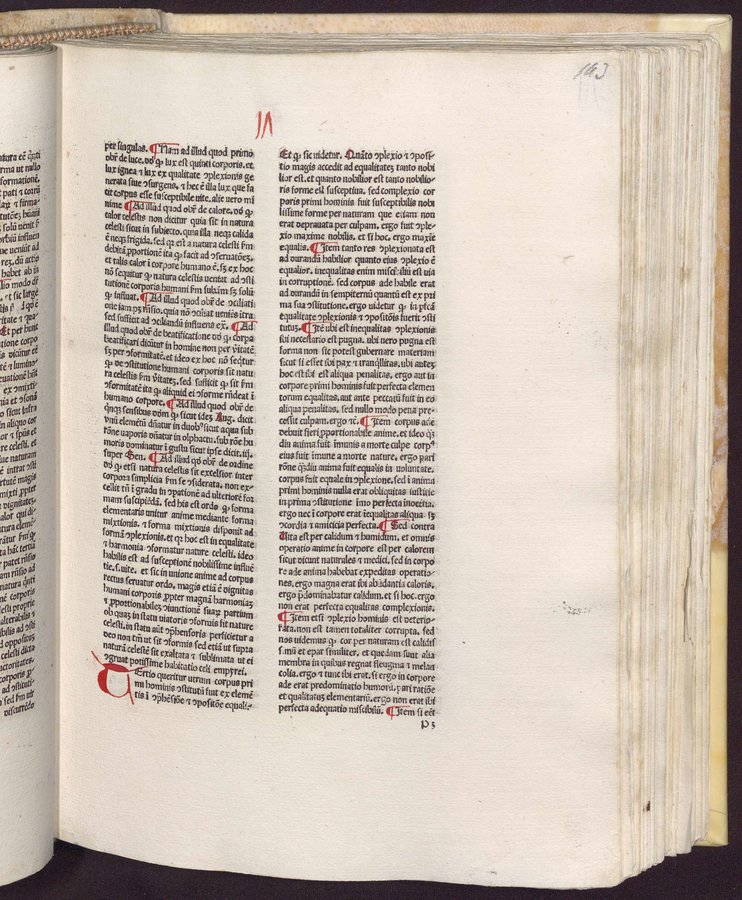 143
per singulas. ¶ Nam ad illud quod primo
obr̄ de luce. dd̄ ꝙ lux est quinti corporis. et
lux ignea ⁊ lux ex qualitate ꝯplexionis ge
nerata siue ꝯsurgens. ⁊ hec ē illa lux que fa
cit corpus esse susceptibile uite. alie uero mi
nime ¶ Ad illud quod obr̄ de calore. dd̄ ꝙ
calor celestis non dicitur quia sit in natura
celesti sicut in subiecto. quia illa neqꝫ calida
ē neqꝫ frigida. sed qꝛ est a natura celesti ẜm
debitā ꝓportionē ita ꝙ facit ad ꝯseruatōeꝫ.
et talis calor ī corpore humano ē. sꝫ ex hoc
nō sequitur ꝙ natura celestis ueniat ad ꝯsti
tutionē corporis humani ẜm subāꝫ sꝫ solū
ꝙ influat. ¶ Ad illud quod obr̄ de ꝯciliati
one iam pꝫ rn̄sio. quia nō ꝯciliat ueniēs ītra
sed sufficit ad ꝯciliandū influens ex̄. ¶ Ad
illud quod obr̄ de beatificatione dd̄ ꝙ corpa
beatificari dicitur in homine non per ūitatē
sꝫ per ꝯformitatē. et ideo ex hoc nō seq̄tur
ꝙ de ꝯstitutione humani corporis sit natu
ra celestis ẜm ūitateꝫ. sed sufficit ꝙ sit ẜm
ꝯformitatē ita ꝙ aliquid ei ꝯforme rn̄deat ī
humano corpore. ¶ Ad illud quod obr̄ de
qn̄qꝫ sensibus dd̄m ꝙ sicut ideꝫ Aug. dicit
vnū elementū dn̄atur in duobꝫ sicut aqua sub
rōne uaporis dn̄atur in olphactu. sub rōne hu
moris dominatur ī gustu sicut ipse dicit. iij.
super Gen̄. ¶ Ad illud qd̄ obr̄ de ordine
dd̄ ꝙ etsi natura celestis sit excelsior inter
corpora simplicia ẜm se ꝯsiderata. non ex-
cellit tn̄ ī gradu in ꝯpatione ad ulteriorē for
mam suscipiēdā. sed his est ordo ꝙ forma
elementaris unitur anime mediante forma
mixtionis. ⁊ forma mixtionis disponit ad
formā ꝯplexionis. et qꝛ hoc est in equalitate
⁊ harmonia ꝯformatur nature celesti. ideo
habilis est ad susceptionē nobilissime influē
tie. s. uite. et sic in unione anime ad corpus
rectus seruatur ordo. magis etiā ē dignitas
humani corporis ꝓpter magnā harmoniaꝫ
⁊ ꝓportionabileꝫ ꝯiunctionē suaꝝ partium
ob quaꝫ in statu uiatoris ꝯformis fit nature
celesti. in statu aūt ꝯphensoris perficietur a
deo non tm̄ ut sit ꝯformis sed etiā ut supra
naturā celestē sit exaltata ⁊ sublimata ut ei
ꝯgruat potissime habitatio celi empyrei.
Tertio queritur utrum corpus pri
mi hominis ꝯstitutū fuit ex elemē
tis ī ꝯphēsiōe ⁊ ꝯpositōe equali-
Et ꝙ sic uidetur. Quāto ꝯplexio ⁊ ꝯposi-
tio magis accedit ad equalitateꝫ tanto nobi
lior est. et quanto nobilior est tanto nobilio-
ris forme est susceptiua. sed complexio cor
poris primi hominis fuit susceptibilis nobi
lissime forme per naturam que etiam non
erat deprauata per culpam. ergo fuit ꝯple-
xio maxime nobilis. et si hoc. ergo maxie
equalis. ¶ Item tanto res ꝯplexionata est
ad durandū habilior quanto eius ꝯplexio ē
equalior. inequalitas enim miscibiliū est uia
in corruptionē. sed corpus ade habile erat
ad durandū in sempiternū quantū est ex pri
ma sua ꝯstitutione. ergo uidetur ꝙ in pfcā
equalitate ꝯplexionis ⁊ ꝯpositōis fuerit ꝯsti
tutus. ¶ Itē ubi est inequalitas ꝯplexionis
ibi necessario est pugna. ubi uero pugna est
forma non sic potest gubernare materiam
sicut si esset ibi pax ⁊ tranq̄llitas. ubi autez
hoc est ibi est aliqua penalitas. ergo aut in
corpore primi hominis fuit perfecta elemen
torum equalitas. aut ante peccatū fuit in eo
aliqua penalitas. sed nullo modo pena pre-
cessit culpam. ergo ⁊c̄. ¶ Item corpus ade
debuit fieri ꝓportionabile anime. et ideo q̄
diu anima fuit īmunis a morte culpe corpꝰ
eius fuit īmune a morte nature. ergo pari
rōne q̄diu anima fuit equalis in uoluntate.
corpus fuit equale in ꝯplexione. sed ī anima
primi hominis nulla erat obliquitas iusticie
in prima ꝯstitutione īmo perfecta īnocētia.
ergo nec ī corpore erat īequalitas aliqua sꝫ
ꝯcordia ⁊ amicicia perfecta. ¶ Sed contra
Uita est per calidum ⁊ humidum. et omnis
operatio anime in corpore est per calorem
sicut dicunt naturales ⁊ medici. sed in corpo
re ade anima habebat expeditas operatio-
nes. ergo magna erat ibi abūdantia caloris.
ergo p̄dominabatur calidum. et si hoc. ergo
non erat perfecta equalitas complexionis.
¶ Item etsi ꝯplexio hominis est deterio-
rata. non est tamen totaliter corrupta. sed
nos uidemus ꝙ cor per naturam est calidissi
mū et epar similiter. et quedam sunt alia
membra in quibus regnat fleugma ⁊ melan
colia. ergo ⁊ tunc ibi erat. si ergo in corpore
ade erat predominatio humoꝝ. pari ratiōe
et qualitatuꝫ elementariū. ergo non erat ibi
perfecta adequatio miscibiliū. ¶ Item si eēt
p 3